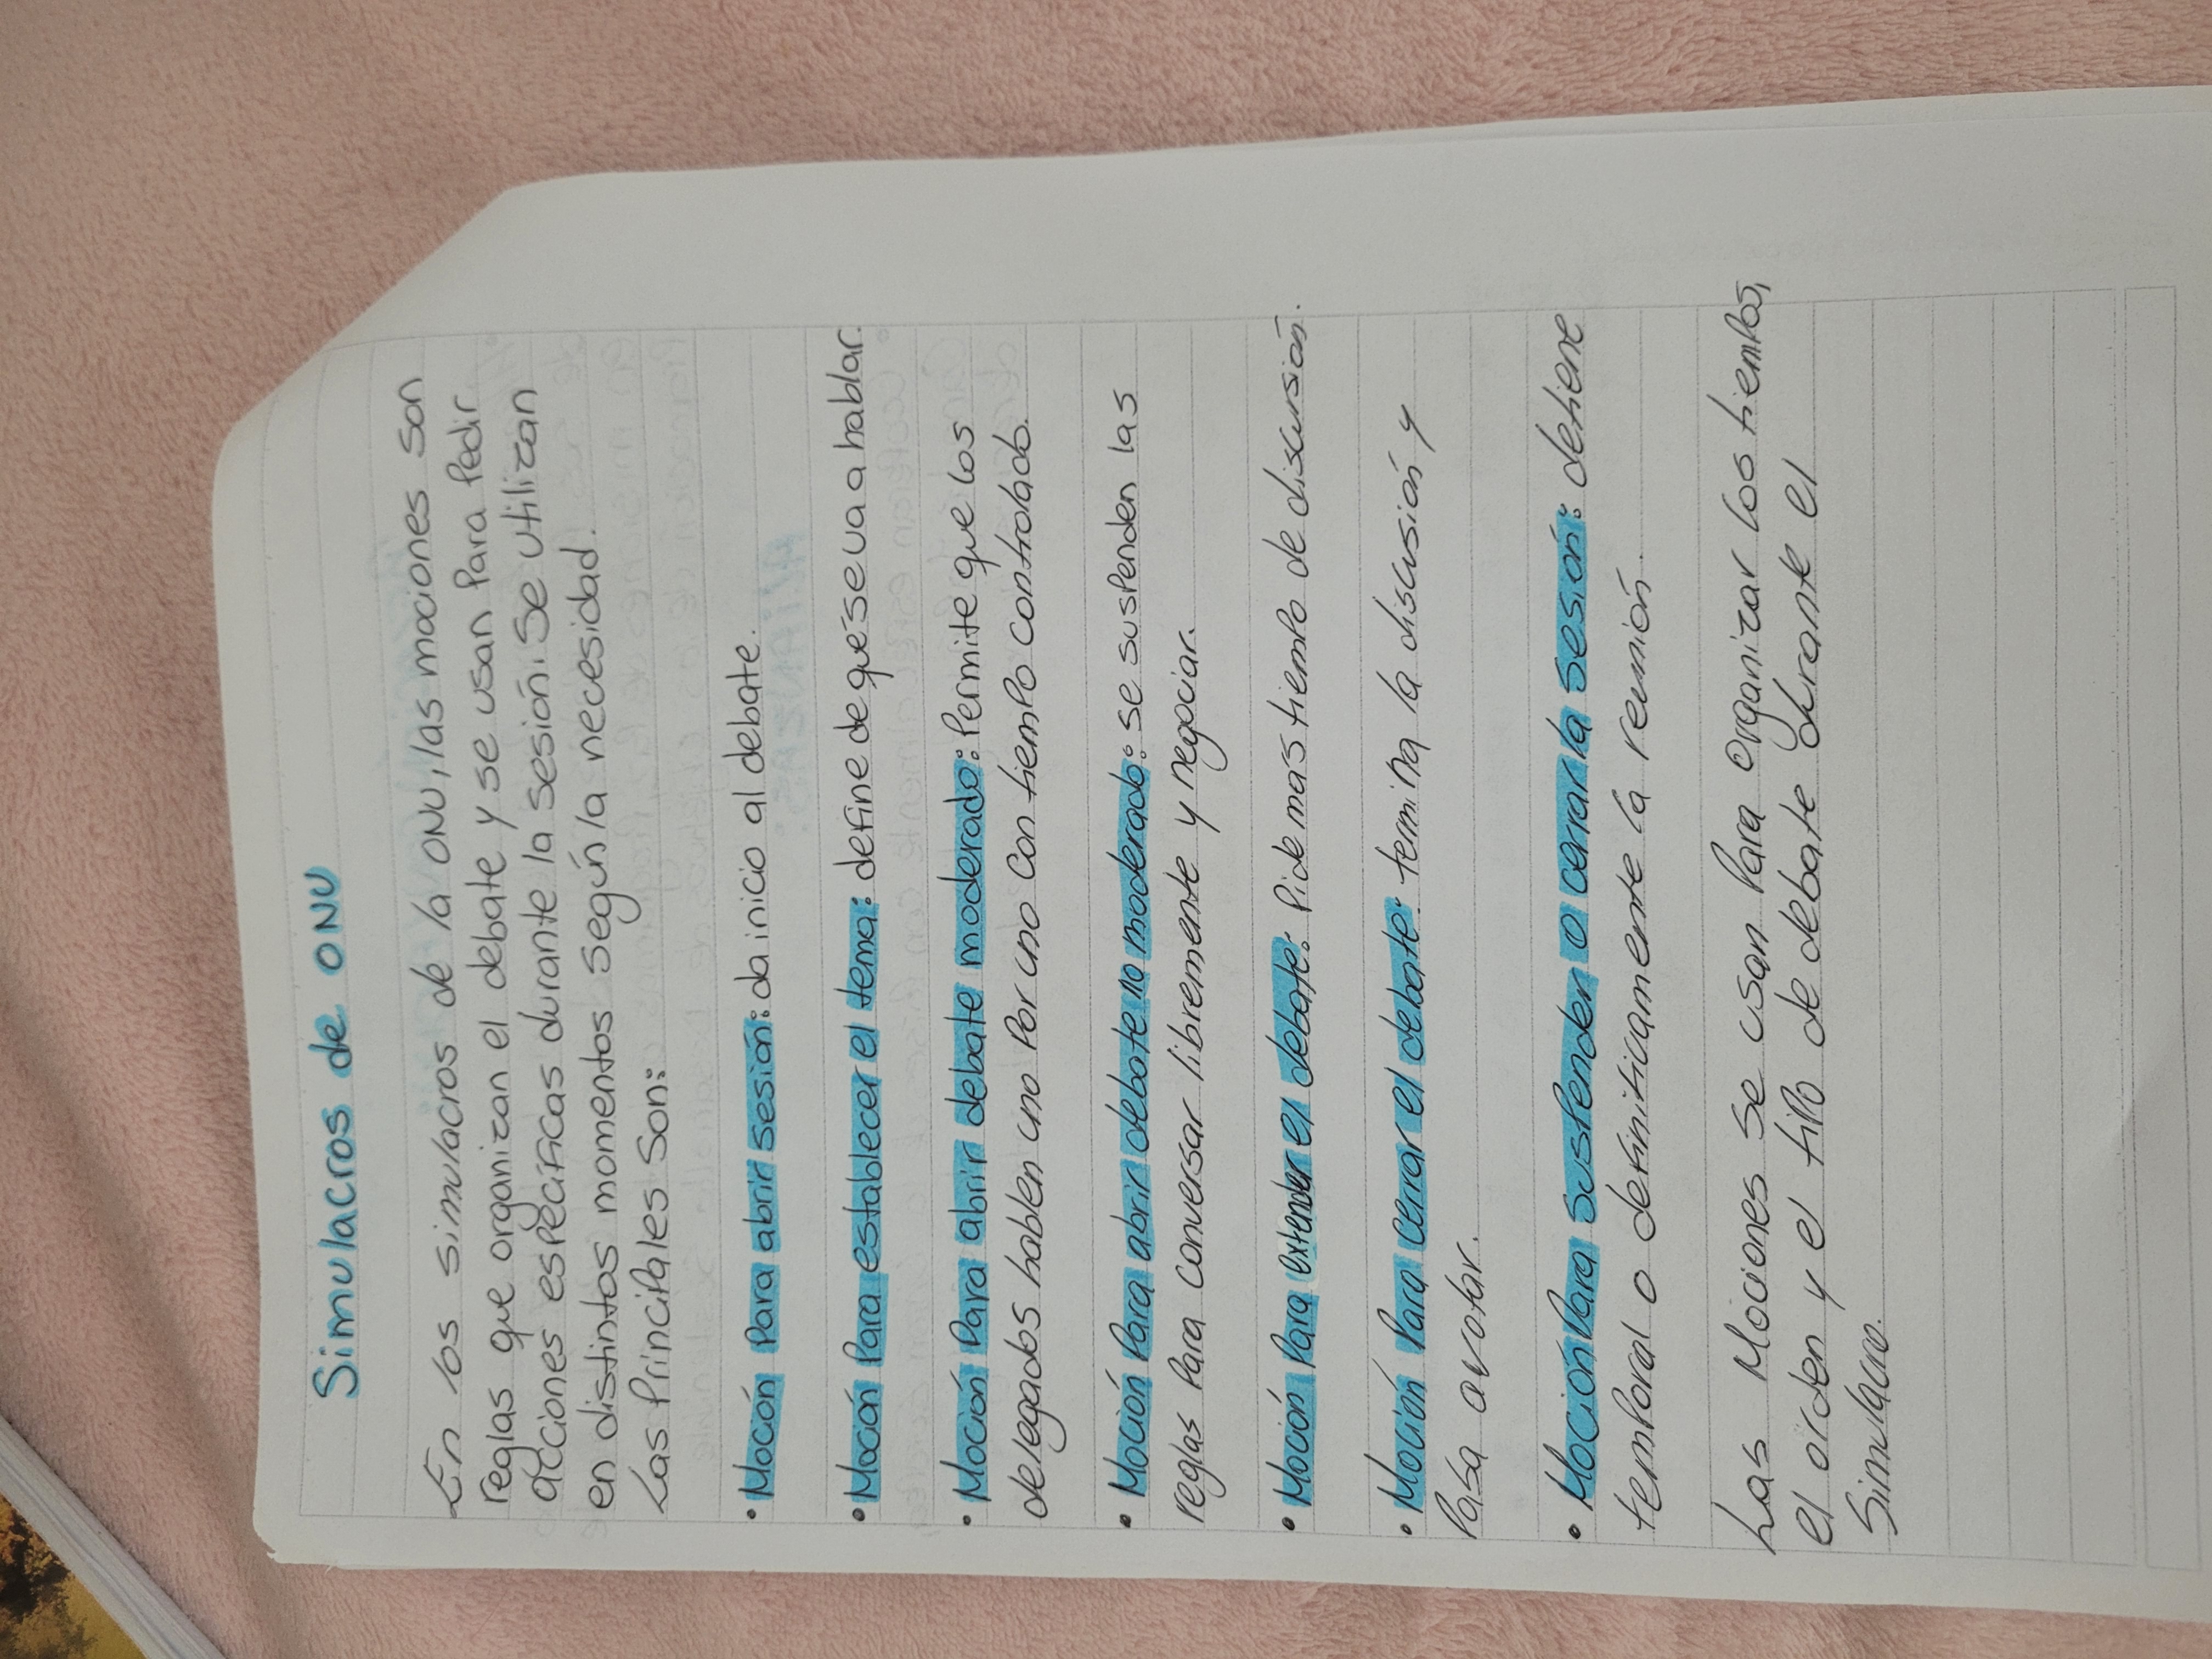 Simulacros de ONU
En los simulacros de la ONU, las mociones son
reglas que organizan el debate y se usan Para Pedir
acciones específicas durante la sesión. Se utilizan
en distintos momentos según la necesidad.
Las Principales Son:
• Moción Para abrir sesión: da inicio al debate.
• Moción Para establecer el tema: define de qué se va a hablar.
• Moción Para abrir debate moderado: Permite que los
delegados hablen uno Por uno con tiempo controlado.
• Moción Para abrir debate no moderado: se suspenden las
reglas Para conversar libremente y negociar.
• Moción Para extender el debate: Pide mas tiempo de discursión.
• Moción Para cerrar el debate: termina la discusión y
Pasa a votar.
• Moción Para suspender o cerrar la sesión: detiene
temporal o definiticamente la reunión.
Las Mociones se usan Para organizar los tiempos,
el orden y el tipo de debate durante el
Simulacro.